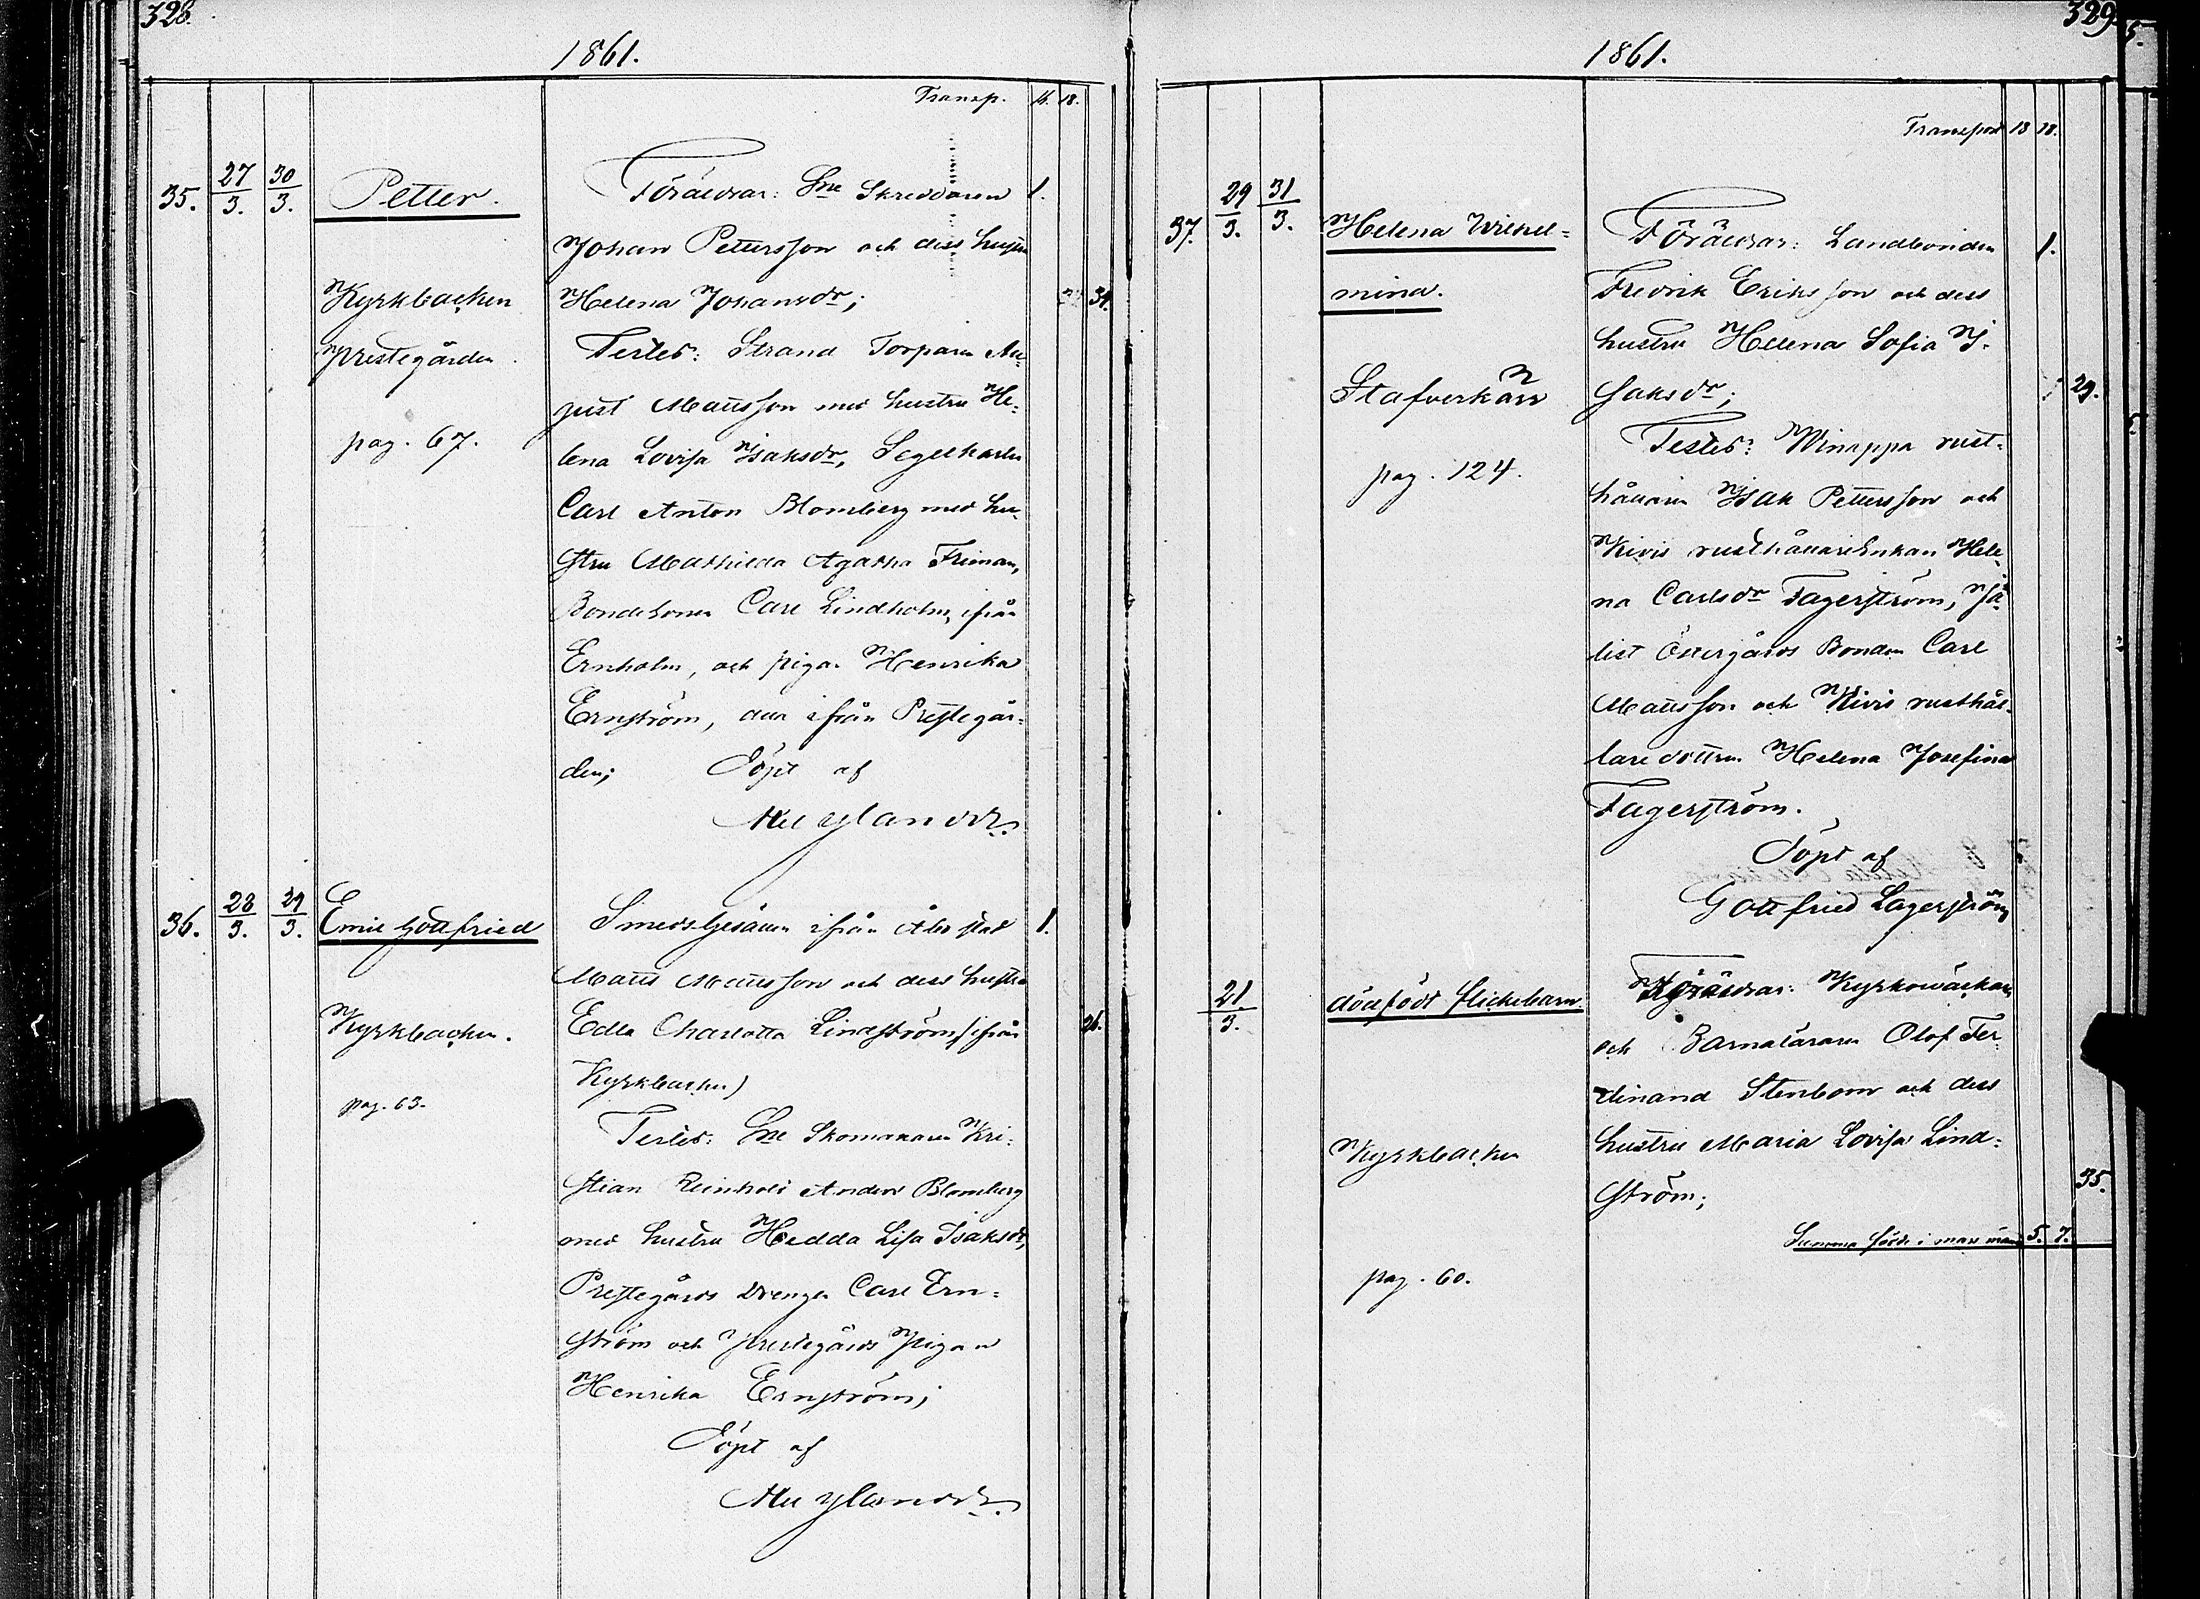 328.
1861.
Transp. 18.
35. 27/3. 30/3. Petter. Föräldrar: Sne Skreddaren 1.
Johan Pettersson och dess hustru
Kyrkbacken Helena Johansdr; 34.
Testes: Strand Torparen Au-
Prestegården
gust Mattsson med hustru He-
pag. 67.
lena Lovisa Isaksdr, Segelkarlen
Carl Anton Blomberg med hu-
stru Mathilda Agatha Friman,
Bondesonen Carl Lindholm, ifrån
Ernholm, och pigan Henrika
Ernström, alla ifrån Prestegår-
den; Döpt af
Mel ylander.
36. 28/3. 29/3. Emil Gottfried Smedsgesällen ifrån Åbo stad 1.
Matts Mattsson och dess hustru
Kyrkbacken. Edla Charlotta Lindström (ifrån 26.
Kyrkbacken)
pag. 63.
Testes: Sne Skomakaren Kri-
stian Reinhold Anders Blomberg
med hustru Hedda Lisa Isaksdr,
Prestegårds Drengen Carl Ern-
ström och prestegårds Pigan
Henrika Ernström;
Döpt af
Mel ylander.
329.
1861.
Transport 13 18.
37. 29/3. 31/3. Helena Wilhel-
mina. Föräldrar: Landbonden 1.
Fredrik Eriksson och dess
hustru Helena Sofia I-
Stafverkärr saksdr; 29.
Testes: Winappa rust-
pag. 124.
hållaren Isak Pettersson och
Kivis rusthållareEnkan Hele-
na Carlsdr Fagerström, Jä-
list Östergårds Bonden Carl
Mattsson och Kivis rusthål-
lare dottren Helena Josefina
Fagerström.
Döpt af
Gottfried Lagerström
21/3. dödfödt flickebarn. Föräldrar: Kyrkowäktaren
och Barnaläraren Olof Fer-
dinand Stenbom och dess
Kyrkbacken hustru Maria Lovisa Lind-
ström; 35.
Summa födde i mars månad 5. 7.
pag. 60.